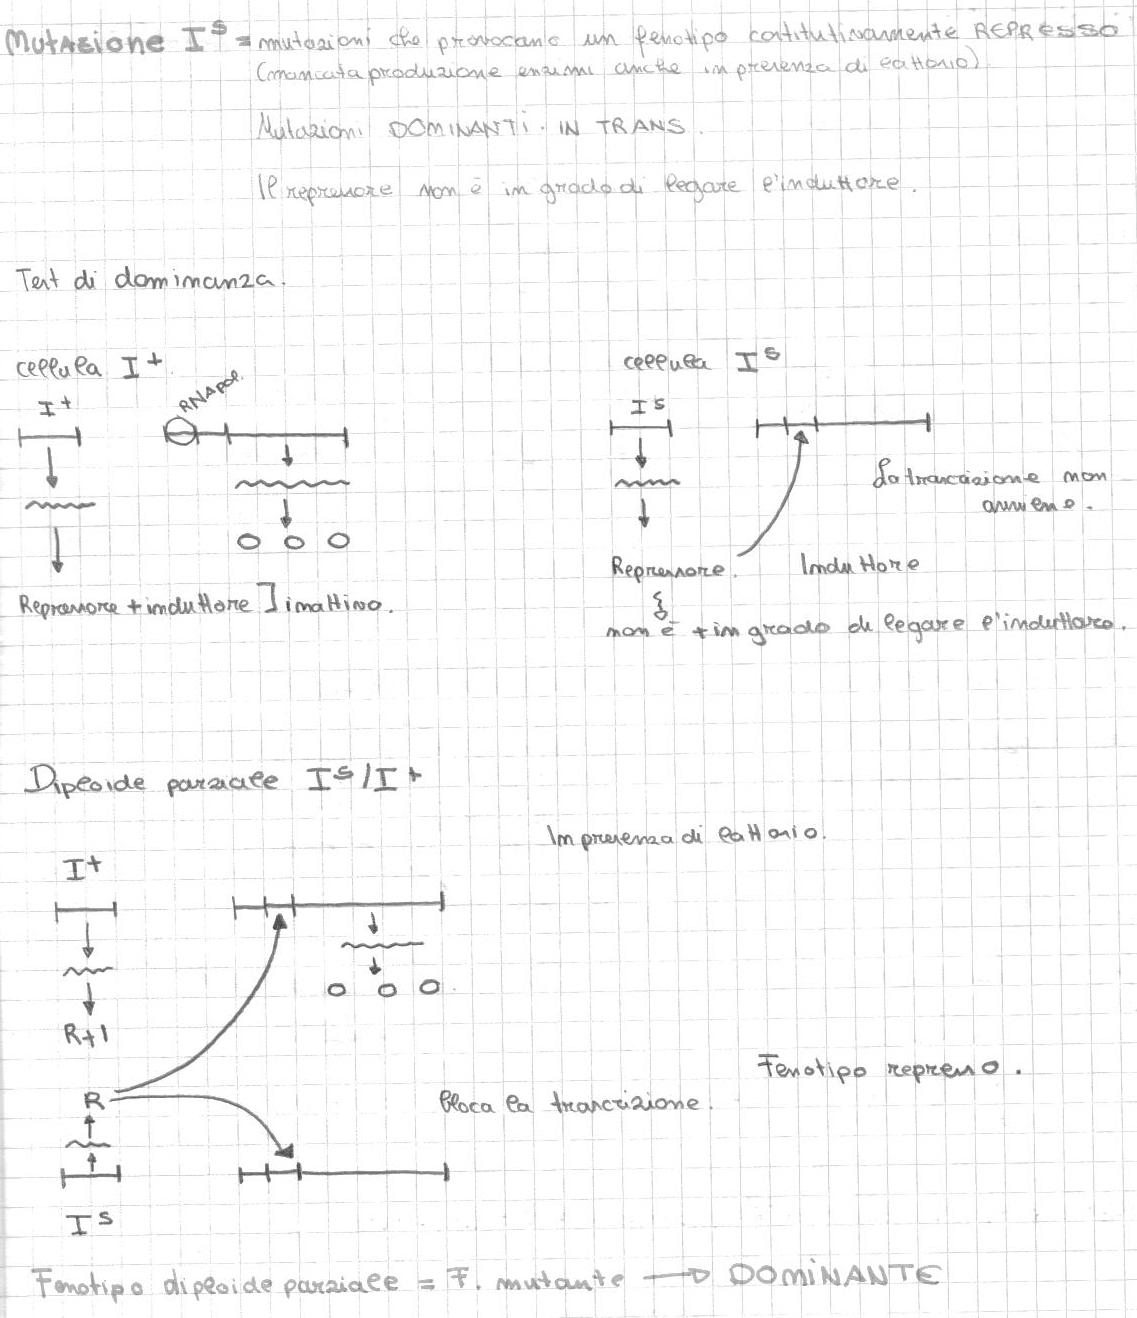 Mutazione Iˢ = mutazioni che provocano un fenotipo costitutivamente REPRESSO
(mancata produzione enzimi anche in presenza di lattosio)
Mutazioni DOMINANTI IN TRANS.
Il repressore non è in grado di legare l'induttore.
Test di dominanza.
cellula I⁺
cellula Iˢ
I⁺
RNApol.
Iˢ
La trascrizione non
avviene.
Repressore + induttore ] inattivo.
Repressore.
Induttore
non è + in grado di legare l'induttore.
Diploide parziale Iˢ/I⁺
In presenza di lattosio.
I⁺
R+I
Fenotipo represso.
R
bloca la trascrizione.
Iˢ
Fenotipo diploide parziale = F. mutante → DOMINANTE